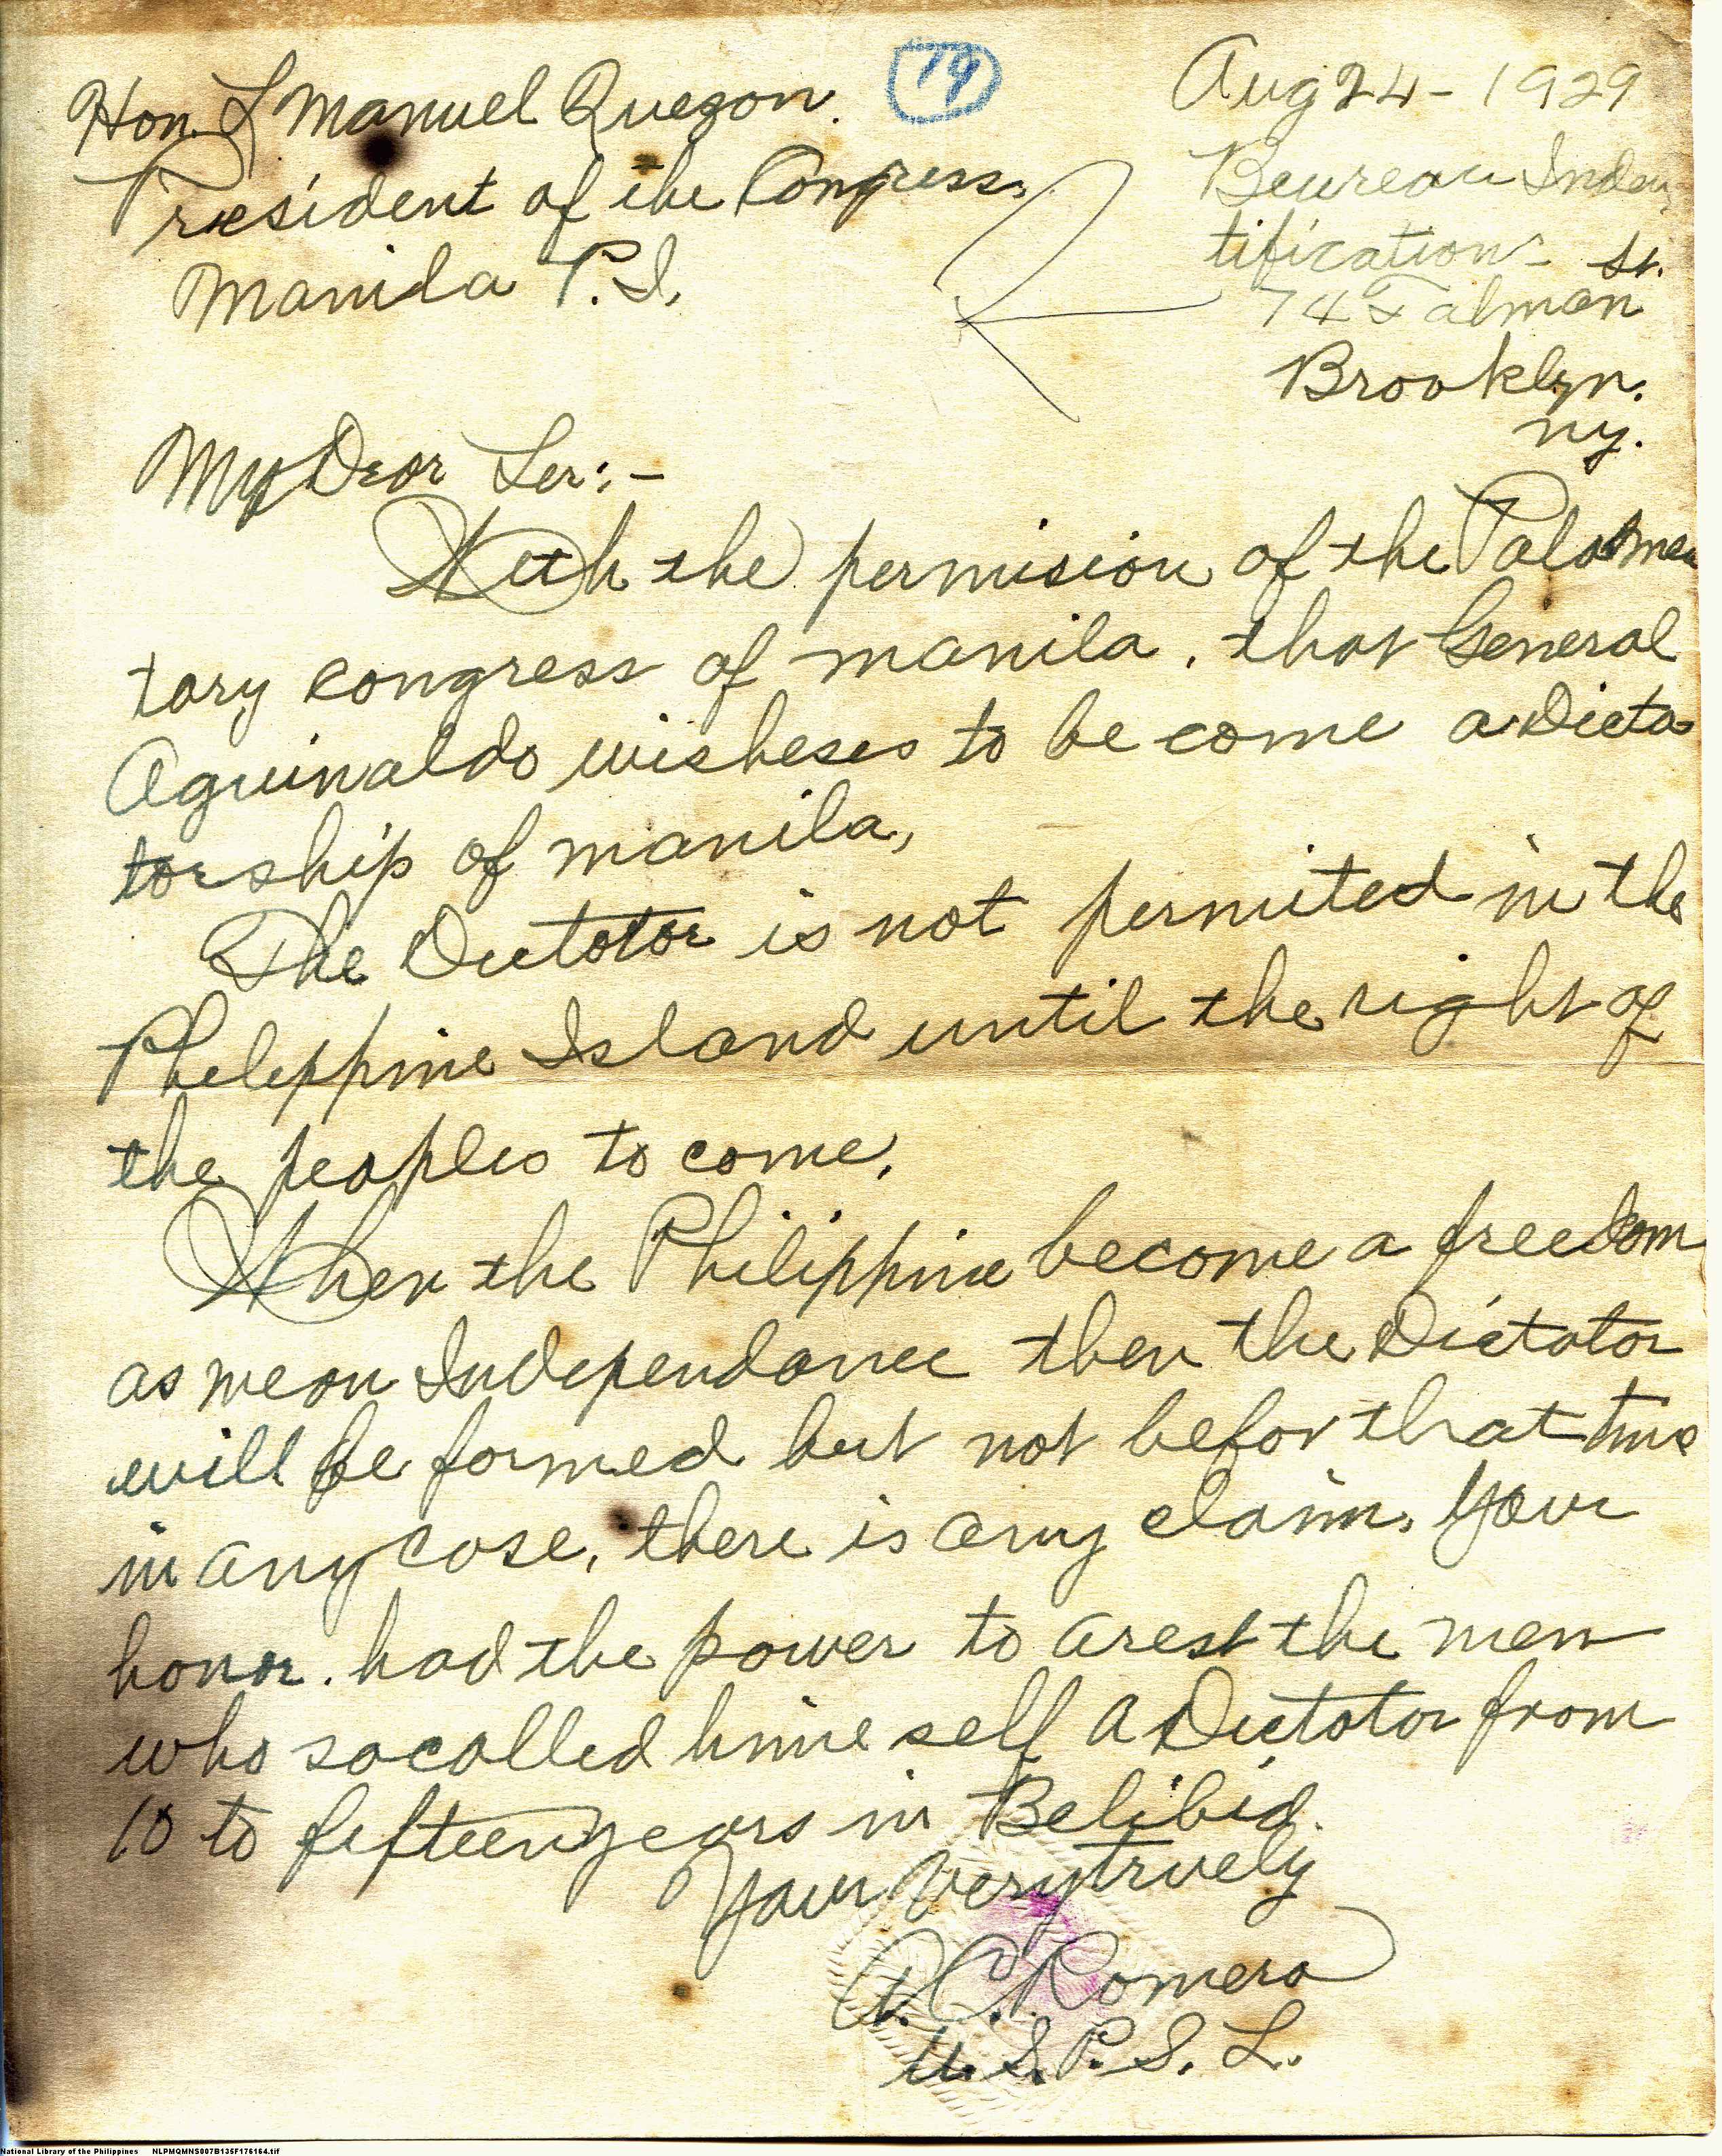 19
Aug 24 - 1929
Hon. L Manuel Quezon.
President of the Congress.
Manila P.I.
Beureau Inden
tification - St.
74 Talman
Brooklyn.
ny.
My Dear Ser:-
With the permision of the Palamen
tary congress of manila. that General
Aguinaldo wisheses to be come a Dicta
torship of manila,
The Dictator is not permited in the
Phelippine Island until the right of
the peoples to come.
When the Philippine become a freedom
as mean Independance then the Dictator
will be formed but not befor that time
in any case, there is any claim. Your
honor. had the power to arest the men
who socalled hime self a Dictator from
10 to fefteen years in Belibid.
Your very truely
C. Romero
U.S.P.S.L.
National Library of the Philippines NLPMQMNS007B135F176164.tif